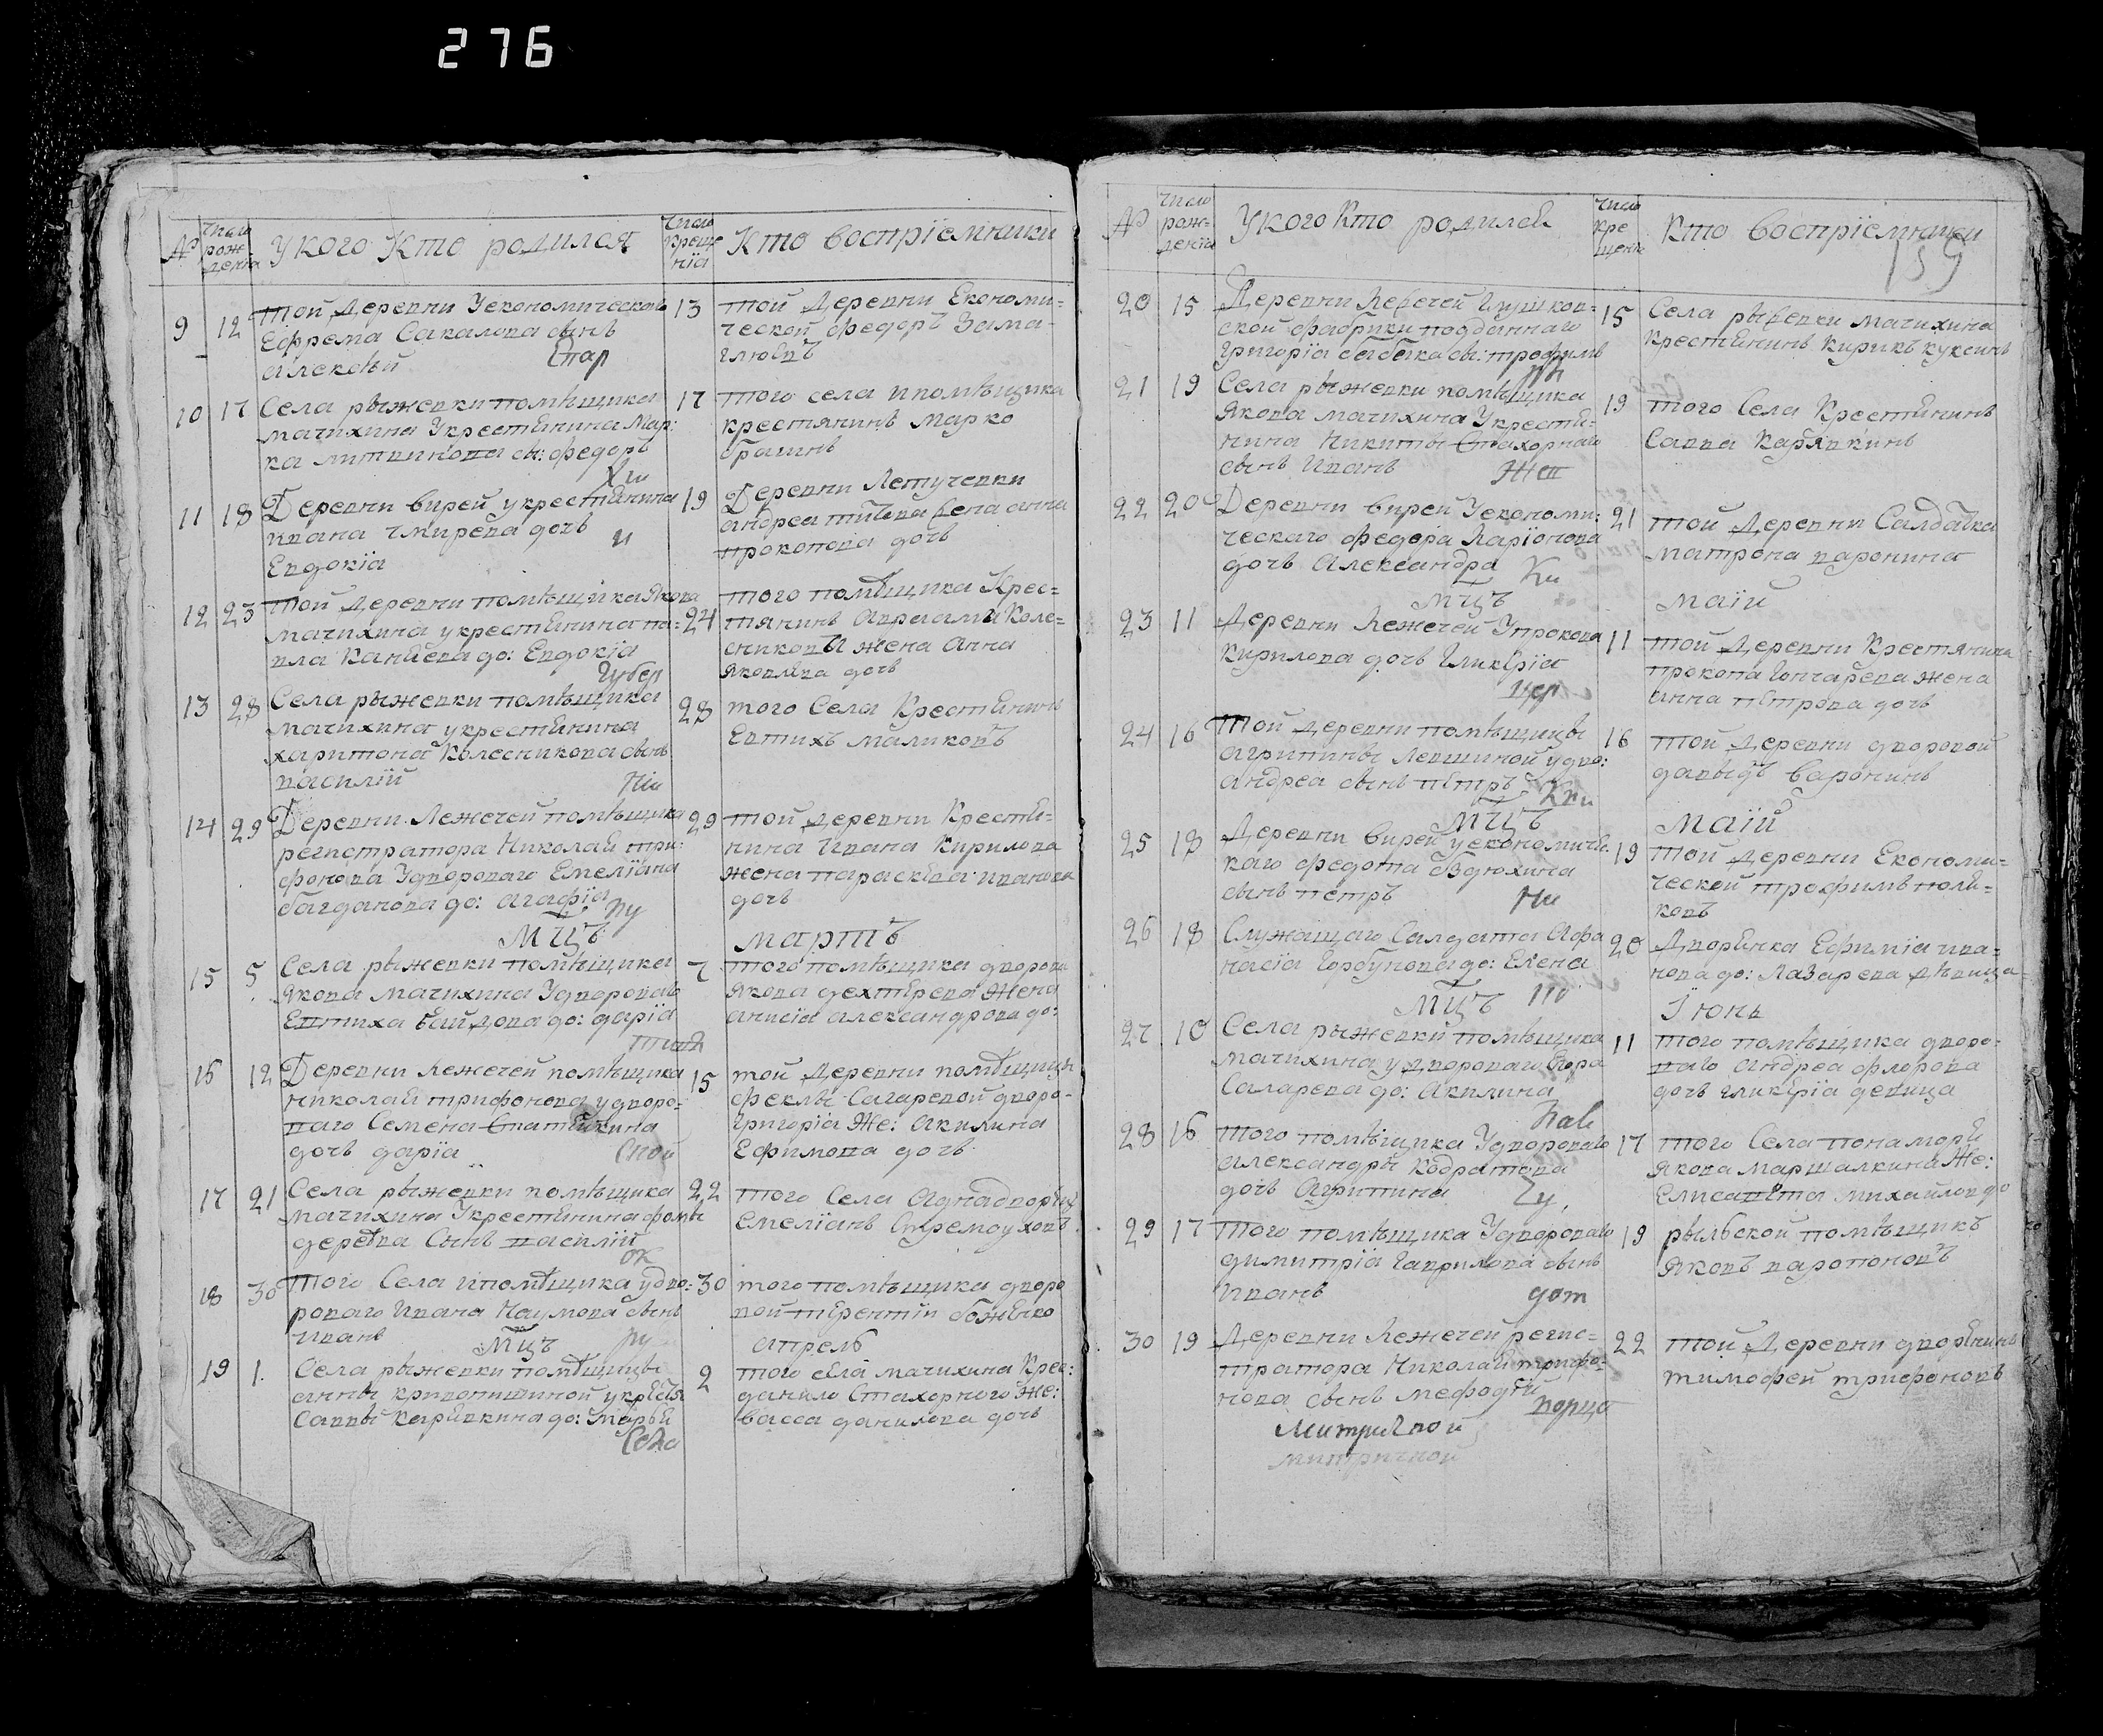 276
№ Число рожденїя У кого Кто родился Число крещенїя Кто воспрїемники
9 12 той Деревни У економическаго
Ефрема Сакалова сынъ
алексѣй
13 той Деревни Економи=
ческой федоръ Зама-
10 17 Села рыжевки помѣщика
мачихина У крестьянина Мар:
ка литвинова сы: федоръ
17 того села и помѣщика
крестянинъ Марко
11 18 Деревни вирей у крестьянина
ивана чмирева дочь
Евдокїя
19 Деревни Летучевки
андреа жена анна
прокопова дочь
12 23 той Деревни помѣщика Якова
мачихина у крестьянина па=
вла до: Евдокїя
24 того помѣщика Крес=
тянинъ Коле=
жена Анна
Яковлева дочь
13 28 Села рыжевки помѣщика
мачихина у крестьянина
харитона Колесникова сынъ
василїй
28 того Села Крестьянинъ
Евтихъ маликовъ
14 29 Деревни Лежачей помѣщика
регистратора Николая три:
фонова У двороваго Емелїана
багданова до: агафїа
29 той Деревни Крестья=
нина Ивана Кирилова
жена параскева иванова
дочь
Мцъ мартъ
15 5 Села рыжевки помѣщика
Якова Мачихина У двороваго
Евтиха до: дарїа
7 того помѣщика дворова
Якова дехтерева жена
анисїа александрова до:
16 12 Деревни Лежачей помѣщика
николая трифонова у дворо=
ваго Семена
дочь дарїа
15 той Деревни помѣщицы
феклы Сагаревой дворо-
Григорїа Же: акилина
Ефимова дочь
17 21 Села рыжевки помѣщика
мачихина У крестьянина фомы
Сынъ василїй
22 того Села Аднадворец
емелїанъ
18 30 Того Села и помѣщика у дво:
роваго Ивана Наумова сынъ
Иванъ
30 того помѣщика дворо
вой терентїй
Мцъ апрель
19 1. Села рыжевки помѣщицы
анны кривопишиной у крестья
Саввы до: Марья
2 того села мачихина Крес:
данила Стахорного Же:
васса данилова дочь
№ Число рожденїя У кого Кто родился Число крещенїя Кто воспрїемники
159
20 15 Деревни Лежачей Глушков=
ской фабрики подданнаго
Григорїа сы: трофимъ
15 Села рыжевки мачихина
Крестьянинъ Кирикъ куксинъ
21 19 Села рыжевки помѣщика
Якова мачихина У крестья=
нина Никиты Стахорнаго
сынъ Иванъ
19 того Села Крестьянинъ
Савва Карявкинъ
22 20 Деревни вирей У економи:
ческаго федора Ларїонова
дочь Александра
21 той Деревни Салдатка
матрона варонина
Мцъ маїи
23 11 Деревни Лежачей У прокопа
Кирилова дочь Гликерїа
11 той Деревни Крестянина
прокопа Гончарева жена
анна петрова дочь
24 16 той деревни помѣщицы
агрипины Левшиной у дво:
андреа сынъ петръ
16 той Деревни дворовой
давыдъ варонинъ
Мцъ Маїи
25 18 Деревни вирей у економиче
каго федота Вдюхина
сынъ петръ
19 той Деревни Економи=
ческой трофимъ поля=
ковъ
26 18 Служащаго Салдата Афа
насїа Горбунова до: Елена
20 Дворянка Ефимїа ива=
нова до: Лазарева дѣвица
Мцъ Їюнь
27 10 Села рыжевки помѣщика
мачихина у двороваго
до: Акилина
11 того помѣщика дворо=
ваго Андреа флорова
дочь гликерїа девица
28 16 того помѣщика У двороваго
александры Кодратова
дочь Агрипина
17 того Села понаморя
Якова Маршалкина Же:
Елисавета михайлов до
29 17 того помѣщика У двороваго
димитрїа Гаврилова сынъ
Иванъ
19 рыльской помѣщикъ
Яковъ
30 19 Деревни Лежачей регис=
тратора Николая трифо=
нова сынъ мефодїй
22 той Деревни дворянинъ
тимофей трифоновъ